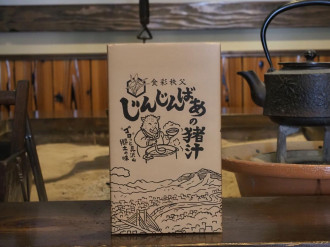 食彩秩父
じんじんばあの猪汁